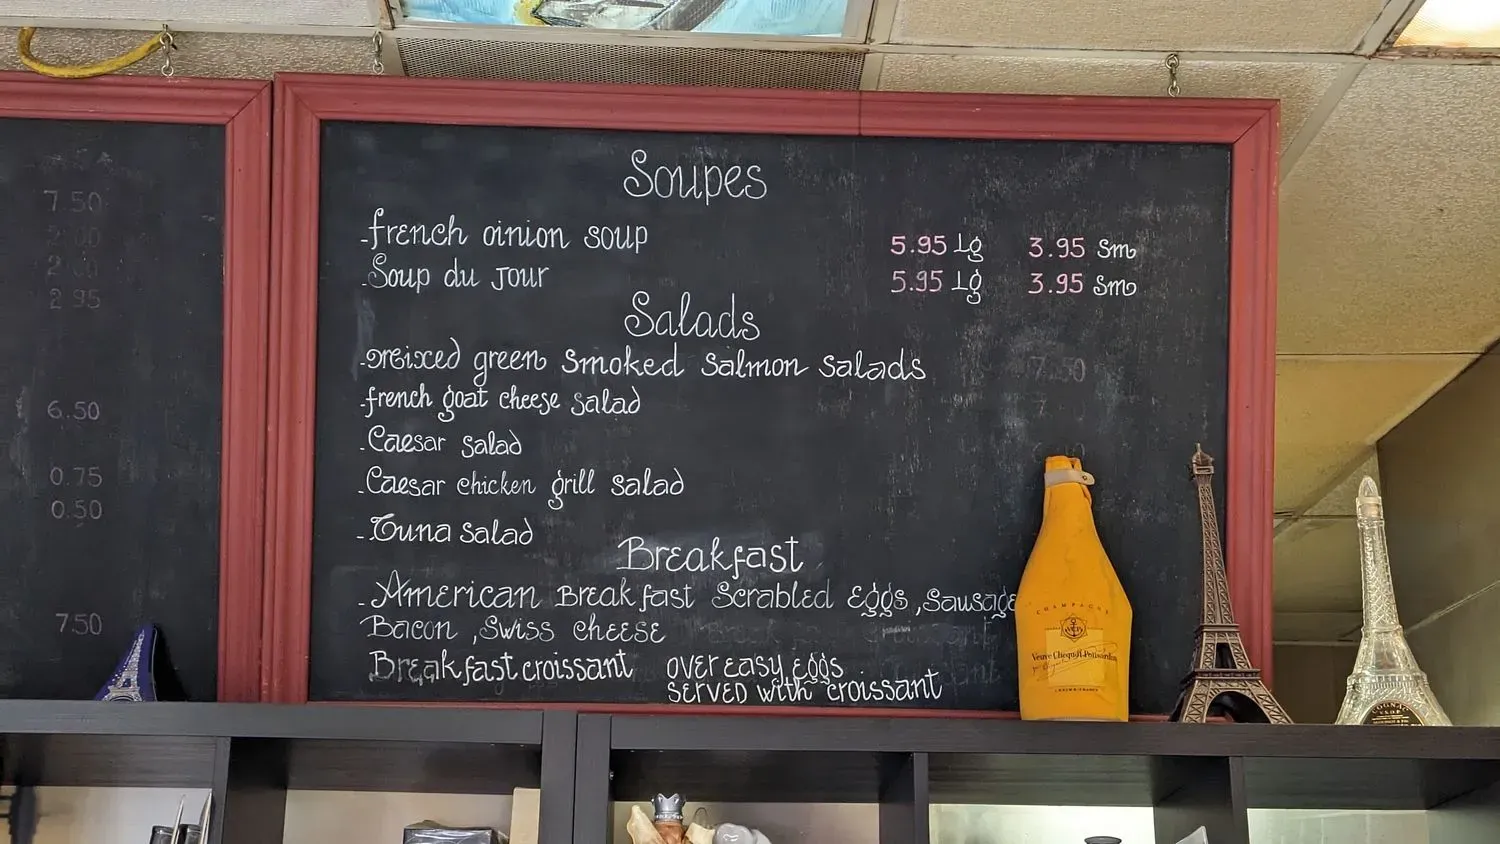 7.50
2.00
2.00
2.95
6.50
0.75
0.50
7.50
Soupes
-french oinion soup 5.95 Lg 3.95 Sm
-Soup du Jour 5.95 Lg 3.95 Sm
Salads
-meixed green smoked salmon salads 7.50
-french goat cheese salad
-Caesar salad
-Caesar chicken grill salad
-Tuna salad
Breakfast
-American Breakfast Scrabled Eggs, Sausage
Bacon, Swiss cheese
Breakfast croissant over easy eggs
served with croissant
CHAMPAGNE
Veuve Clicquot Ponsardin
REIMS FRANCE
COGNAC
V.S.O.P.